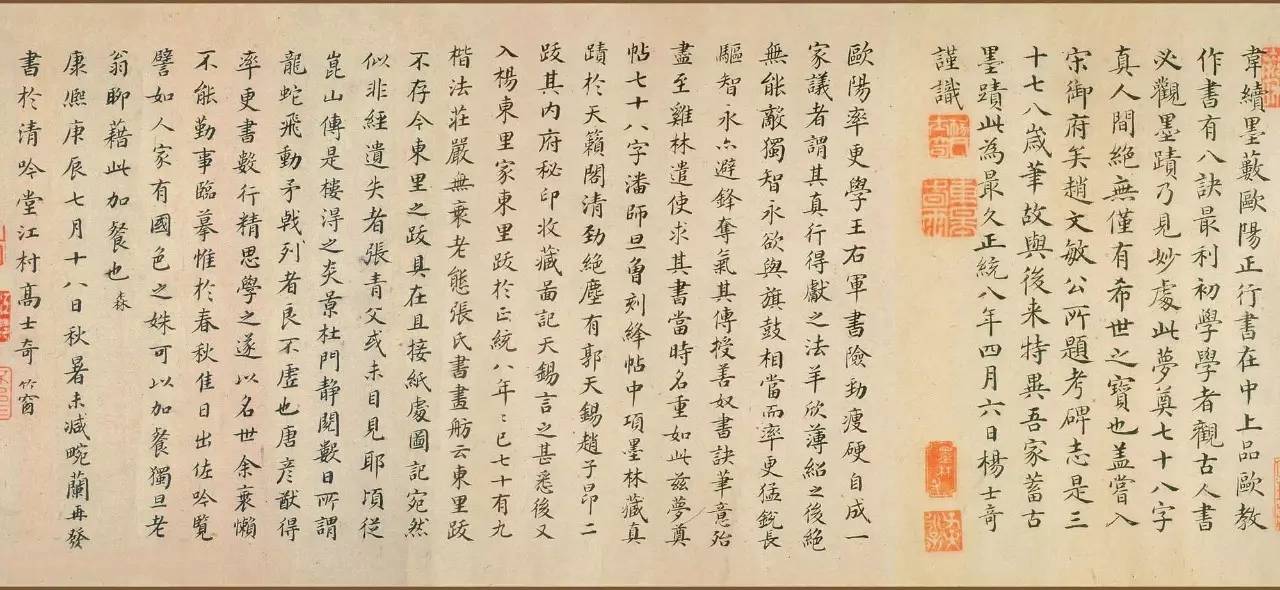 韋續墨藪歐陽正行書在中上品歐教
作書有八訣最利初學學者觀古人書
必觀墨蹟乃見妙處此夢奠七十八字
真人間絕無僅有希世之寶也盖嘗入
宋御府矣趙文敏公所題考碑志是三
十七八歲筆故與後来特異吾家蓄古
墨蹟此為最久正統八年四月六日楊士竒
謹識
歐陽率更學王右軍書險勁瘦硬自成一
家議者謂其真行得獻之法羊欣薄紹之後絕
無能敵獨智永欲與旗鼓相當而率更猛銳長
驅智永亦避鋒奪氣其傳授善奴書訣筆意殆
盡至雞林遣使求其書當時名重如此茲夢奠
帖七十八字潘師旦曾刻絳帖中項墨林藏真
蹟於天籟閣清勁絕塵有郭天錫趙子昂二
跋其內府秘印收藏啚記天錫言之甚悉後又
入楊東里家東里跋於正統八年年已七十有九
楷法莊嚴無衰老態張氏書畫舫云東里跋
不存今東里之跋具在且接紙處圖記宛然
似非經遺失者張青父或未目見耶頃從
崑山傳是樓淂之炎景杜門静閱數日所謂
龍蛇飛動矛戟列者良不虛也唐彦猷得
率更書數行精思學之遂以名世余衰懶
不能勤事臨摹惟於春秋佳日出佐吟覽
譬如人家有國色之姝可以加餐獨旦老
翁聊藉此加餐也森
康熙庚辰七月十八日秋暑未減畹蘭再發
書於清吟堂江村高士奇 竹窗